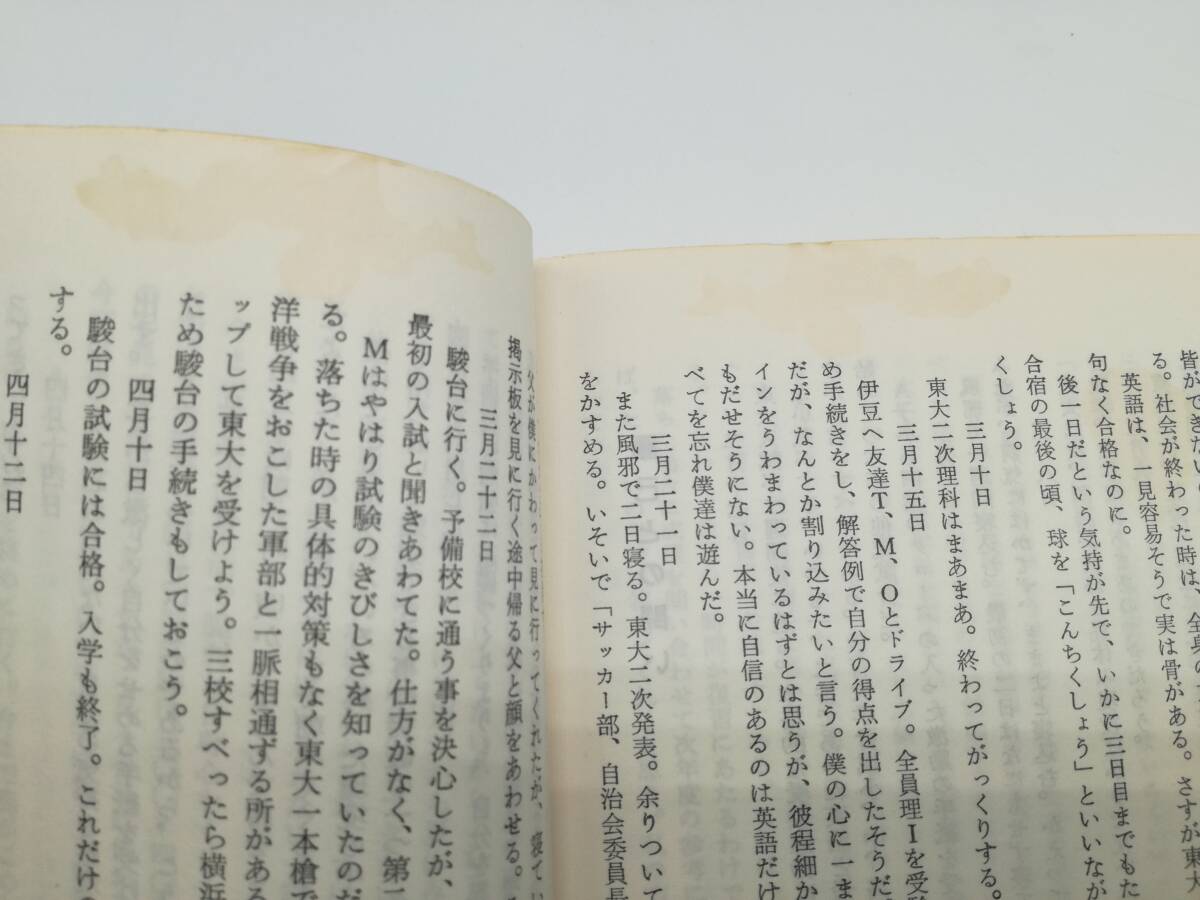 皆ができない
る。社会が終わった時は、全身の
英語は、一見容易そうで実は骨がある。さすが東大
句なく合格なのに。
後一日だという気持が先で、いかに三日目までもた
合宿の最後の頃、球を「こんちくしょう」といいなが
くしょう。
三月十日
東大二次理科はまあまあ。終わってがっくりする。
三月十五日
伊豆へ友達T、M、Oとドライブ。全員理Ⅰを受験
め手続きをし、解答例で自分の得点を出したそうだ
だが、なんとか割り込みたいと言う。僕の心に一ま
インをうわまわっているはずとは思うが、彼程細か
もだせそうにない。本当に自信のあるのは英語だけ
べてを忘れ僕達は遊んだ。
三月二十一日
また風邪で二日寝る。東大二次発表。余りついて
をかすめる。いそいで「サッカー部、自治会委員長
父が僕にかわって見に行ってくれたが、寝てい
掲示板を見に行く途中帰る父と顔をあわせる。
三月二十二日
駿台に行く。予備校に通う事を決心したが、
最初の入試と聞きあわてた。仕方がなく、第二
Mはやはり試験のきびしさを知っていたのだ
る。落ちた時の具体的対策もなく東大一本槍で
洋戦争をおこした軍部と一脈相通ずる所がある
ップして東大を受けよう。三校すべったら横浜
ため駿台の手続きもしておこう。
四月十日
駿台の試験には合格。入学も終了。これだけの
する。
四月十二日